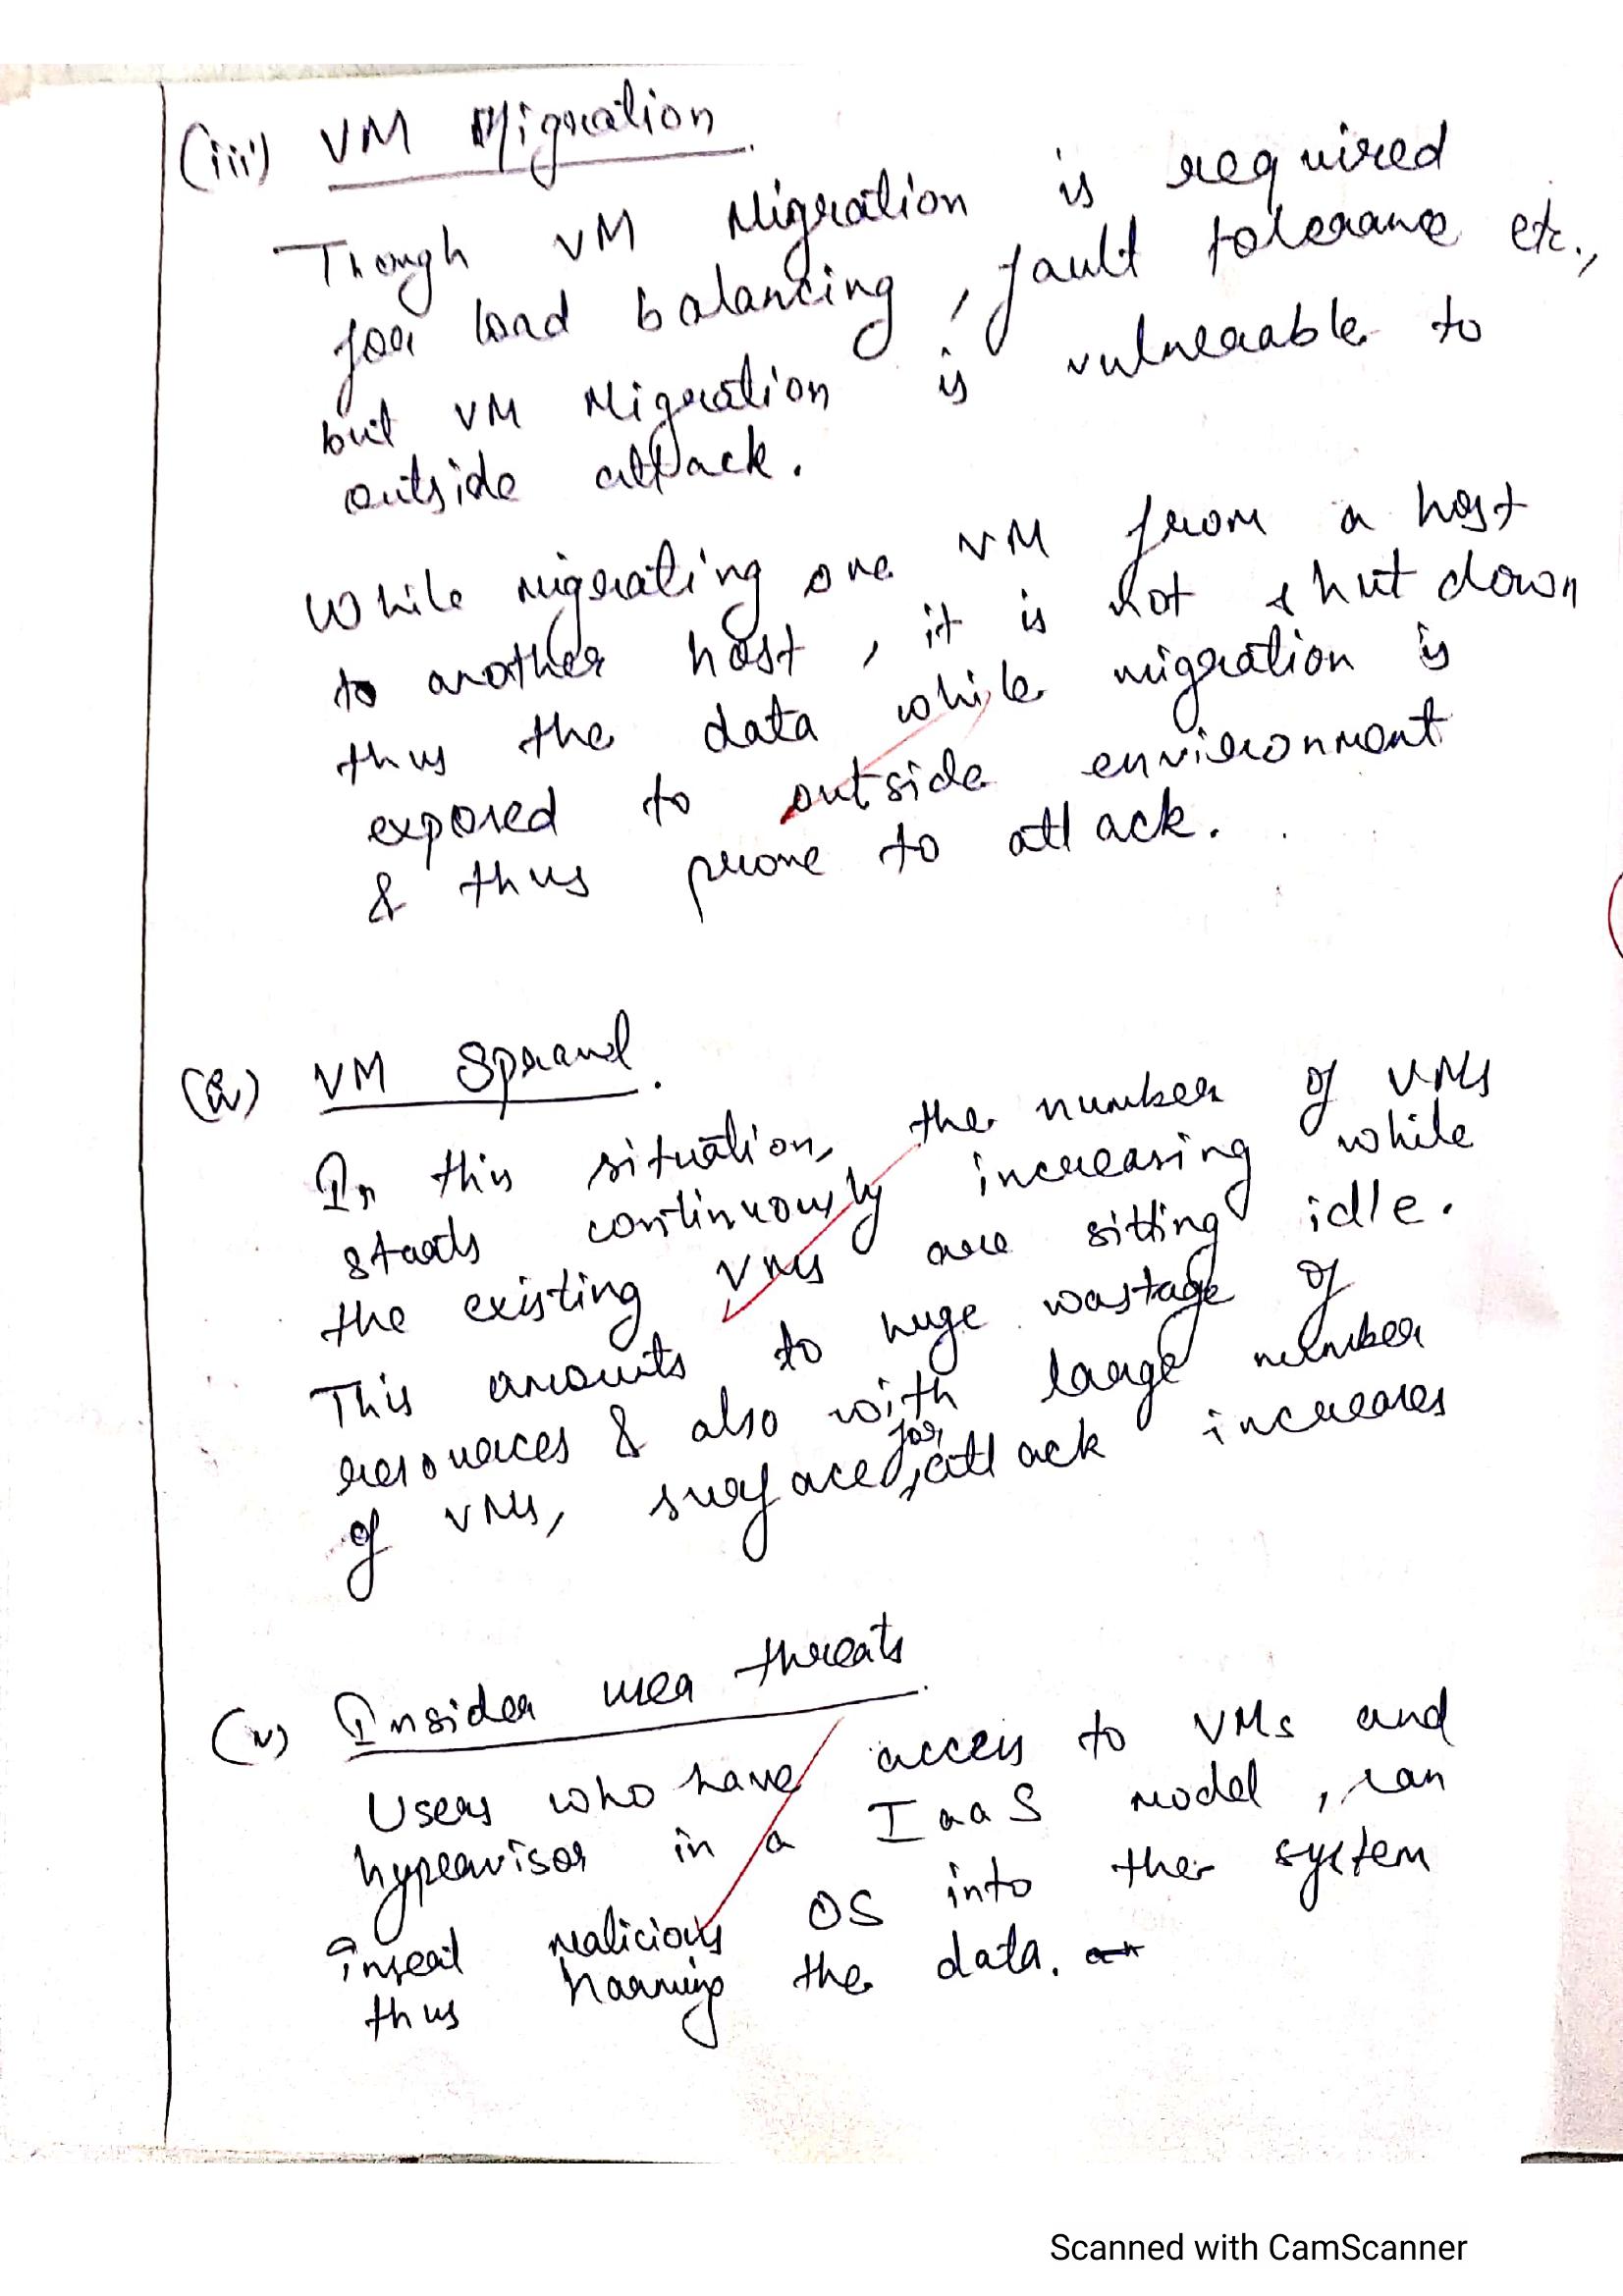 (iii) VM Migration.
Though VM Migration is required
for load balancing, fault tolerance etc.,
but VM Migration is vulnerable to
outside attack.
While migrating one VM from a host
to another host, it is not shut down
thus the data while migration is
exposed to outside environment
& thus prone to attack.
(iv) VM Sprawl.
In this situation, the number of VMs
starts continuously increasing while
the existing VMs are sitting idle.
This amounts to huge wastage of
resources & also with large number
of VMs, surface for attack increases
(v) Insider user threats.
Users who have access to VMs and
hypervisor in a IaaS model, can
insert malicious OS into the system
thus harming the data.
Scanned with CamScanner